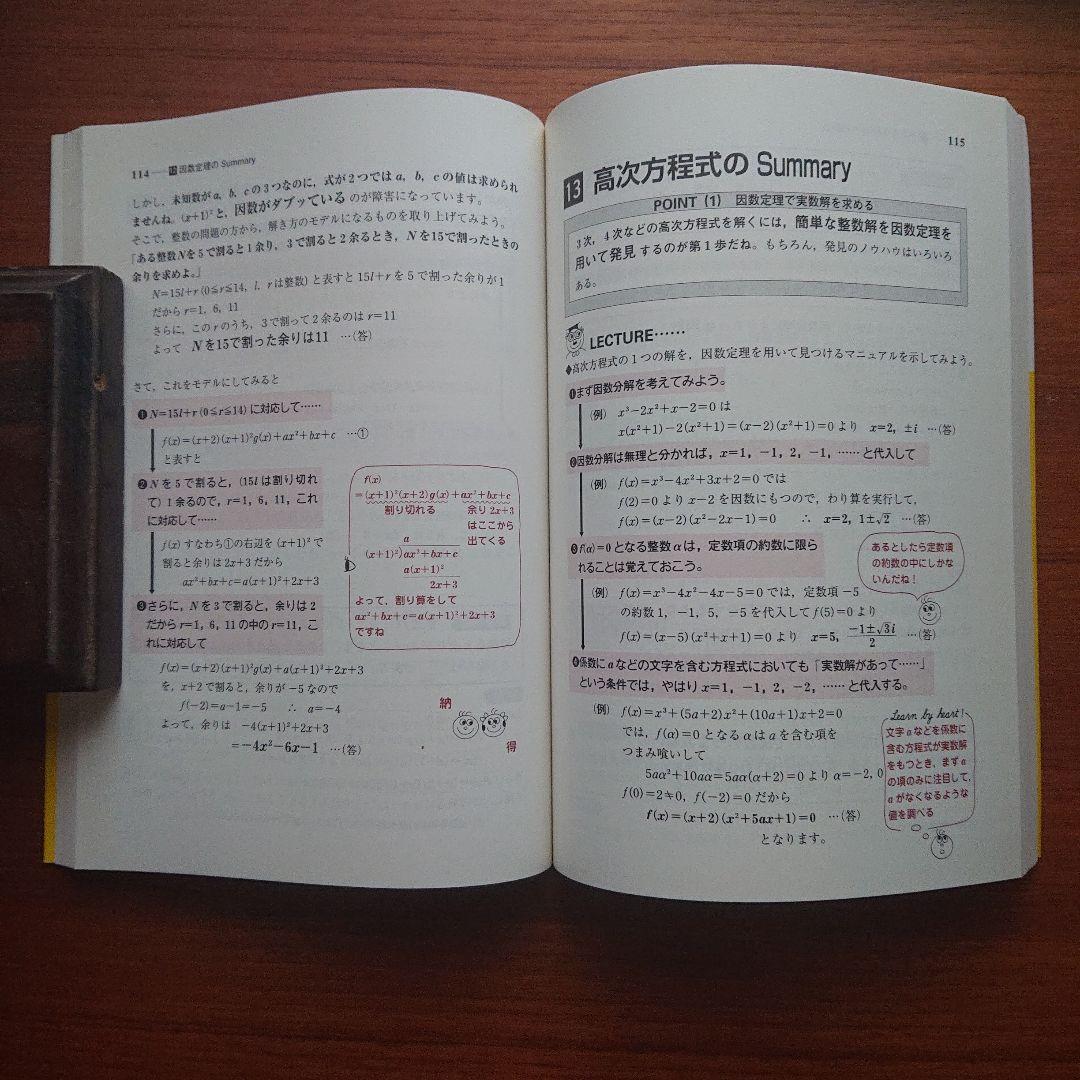 114 — 12 因数定理の Summary
しかし，未知数がa，b，cの3つなのに，式が2つではa，b，cの値は求められ
ませんね。(x+1)²と，因数がダブッているのが障害になっています。
そこで，整数の問題の方から，解き方のモデルになるものを取り上げてみよう。
「ある整数Nを5で割ると1余り，3で割ると2余るとき，Nを15で割ったときの
余りを求めよ。」
N=15l+r (0≦r≦14，l，rは整数) と表すと 15l+r を5で割った余りが1
だから r=1，6，11
さらに，このrのうち，3で割って2余るのは r=11
よって Nを15で割った余りは11 …(答)
さて，これをモデルにしてみると
❶ N=15l+r (0≦r≦14) に対応して……
f(x)=(x+2)(x+1)²g(x)+ax²+bx+c …①
と表すと
❷ Nを5で割ると，(15lは割り切れ
て) 1余るので，r=1，6，11，これ
に対応して……
f(x) すなわち①の右辺を (x+1)² で
割ると余りは 2x+3 だから
ax²+bx+c=a(x+1)²+2x+3
❸ さらに，Nを3で割ると，余りは2
だから r=1，6，11 の中の r=11，こ
れに対応して
f(x)=(x+2)(x+1)²g(x)+a(x+1)²+2x+3
を，x+2で割ると，余りが −5 なので
f(−2)=a−1=−5 ∴ a=−4
よって，余りは −4(x+1)²+2x+3
=−4x²−6x−1 …(答)
f(x)
=(x+1)²(x+2)g(x)+ax²+bx+c
割り切れる 余り 2x+3
はここから
出てくる
a
(x+1)²)ax²+bx+c
a(x+1)²
2x+3
よって，割り算をして
ax²+bx+c=a(x+1)²+2x+3
ですね
納
得
115
13 高次方程式の Summary
POINT (1) 因数定理で実数解を求める
3次，4次などの高次方程式を解くには，簡単な整数解を因数定理を
用いて発見するのが第1歩だね。もちろん，発見のノウハウはいろいろ
ある。
LECTURE……
◆高次方程式の1つの解を，因数定理を用いて見つけるマニュアルを示してみよう。
❶まず因数分解を考えてみよう。
(例) x³−2x²+x−2=0 は
x(x²+1)−2(x²+1)=(x−2)(x²+1)=0 より x=2，±i …(答)
❷因数分解は無理と分かれば，x=1，−1，2，−1，……と代入して
(例) f(x)=x³−4x²+3x+2=0 では
f(2)=0 より x−2 を因数にもつので，わり算を実行して，
f(x)=(x−2)(x²−2x−1)=0 ∴ x=2，1±√2 …(答)
❸f(α)=0 となる整数αは，定数項の約数に限ら
れることは覚えておこう。
(例) f(x)=x³−4x²−4x−5=0 では，定数項 −5
の約数 1，−1，5，−5 を代入して f(5)=0 より
f(x)=(x−5)(x²+x+1)=0 より x=5，(−1±√3i)/2 …(答)
あるとしたら定数項
の約数の中にしかな
いんだね！
❹係数にaなどの文字を含む方程式においても「実数解があって……」
という条件では，やはり x=1，−1，2，−2，……と代入する。
(例) f(x)=x³+(5a+2)x²+(10a+1)x+2=0
では，f(α)=0 となる α は a を含む項を
つまみ喰いして
5aα²+10aα=5aα(α+2)=0 より α=−2，0
f(0)=2≠0，f(−2)=0 だから
f(x)=(x+2)(x²+5ax+1)=0 …(答)
となります。
Learn by heart!
文字aなどを係数に
含む方程式が実数解
をもつとき，まずa
の項のみに注目して，
aがなくなるような
値を調べる